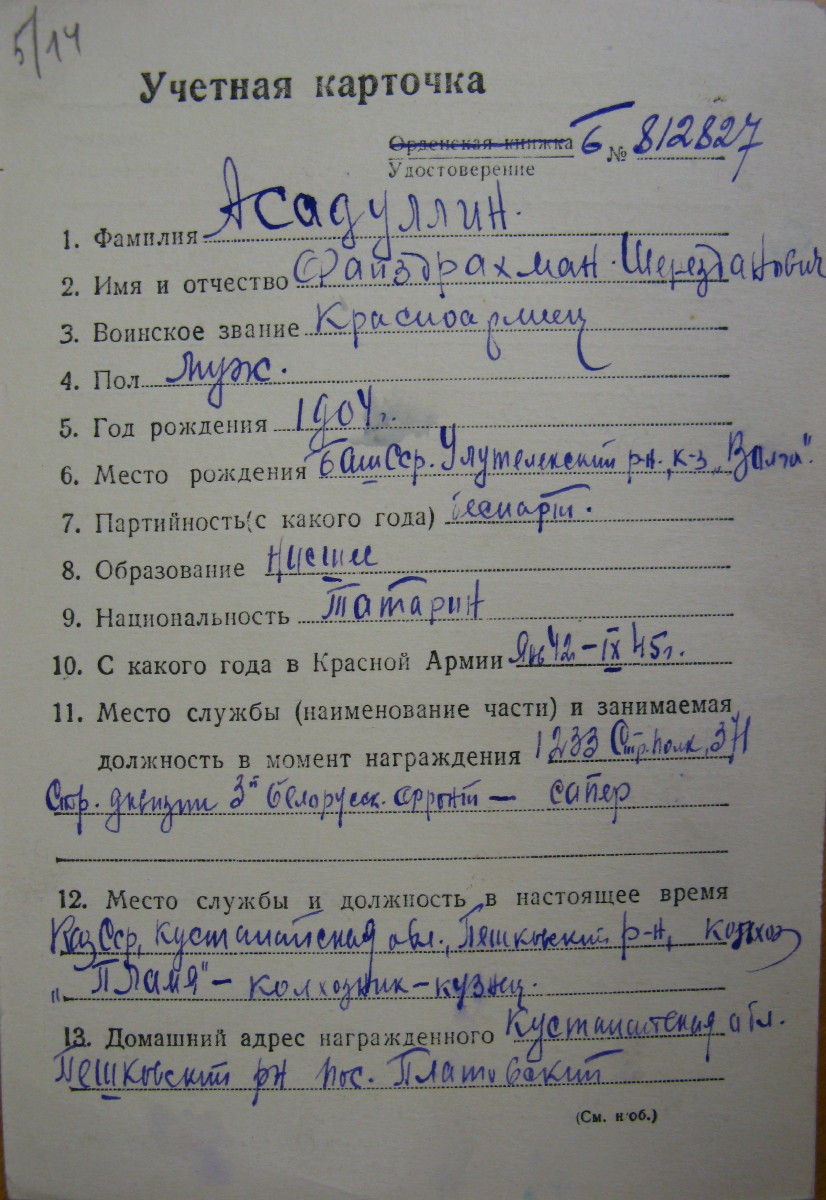 5/14
Учетная карточка
Орденская книжка Б № 812827
Удостоверение
1. Фамилия Асадуллин.
2. Имя и отчество Файзрахман Шерезданович
3. Воинское звание Красноармеец
4. Пол муж.
5. Год рождения 1904 г.
6. Место рождения БашССР. Улутелекский р-н., к-з „Волга".
7. Партийность (с какого года) беспарт.
8. Образование Нисшее
9. Национальность Татарин
10. С какого года в Красной Армии Янв 42 – IX 45 г.
11. Место службы (наименование части) и занимаемая
должность в момент награждения 1233 Стр. полк, 371
Стр. дивизии 3й Белорусск. фронт — сапер
12. Место службы и должность в настоящее время
КазССР, Кустанайская обл., Пешковский р-н, колхоз
„Пламя" – колхозник – кузнец.
13. Домашний адрес награжденного Кустанайская обл.
Пешковский рн пос. Платовский
(См. н об.)